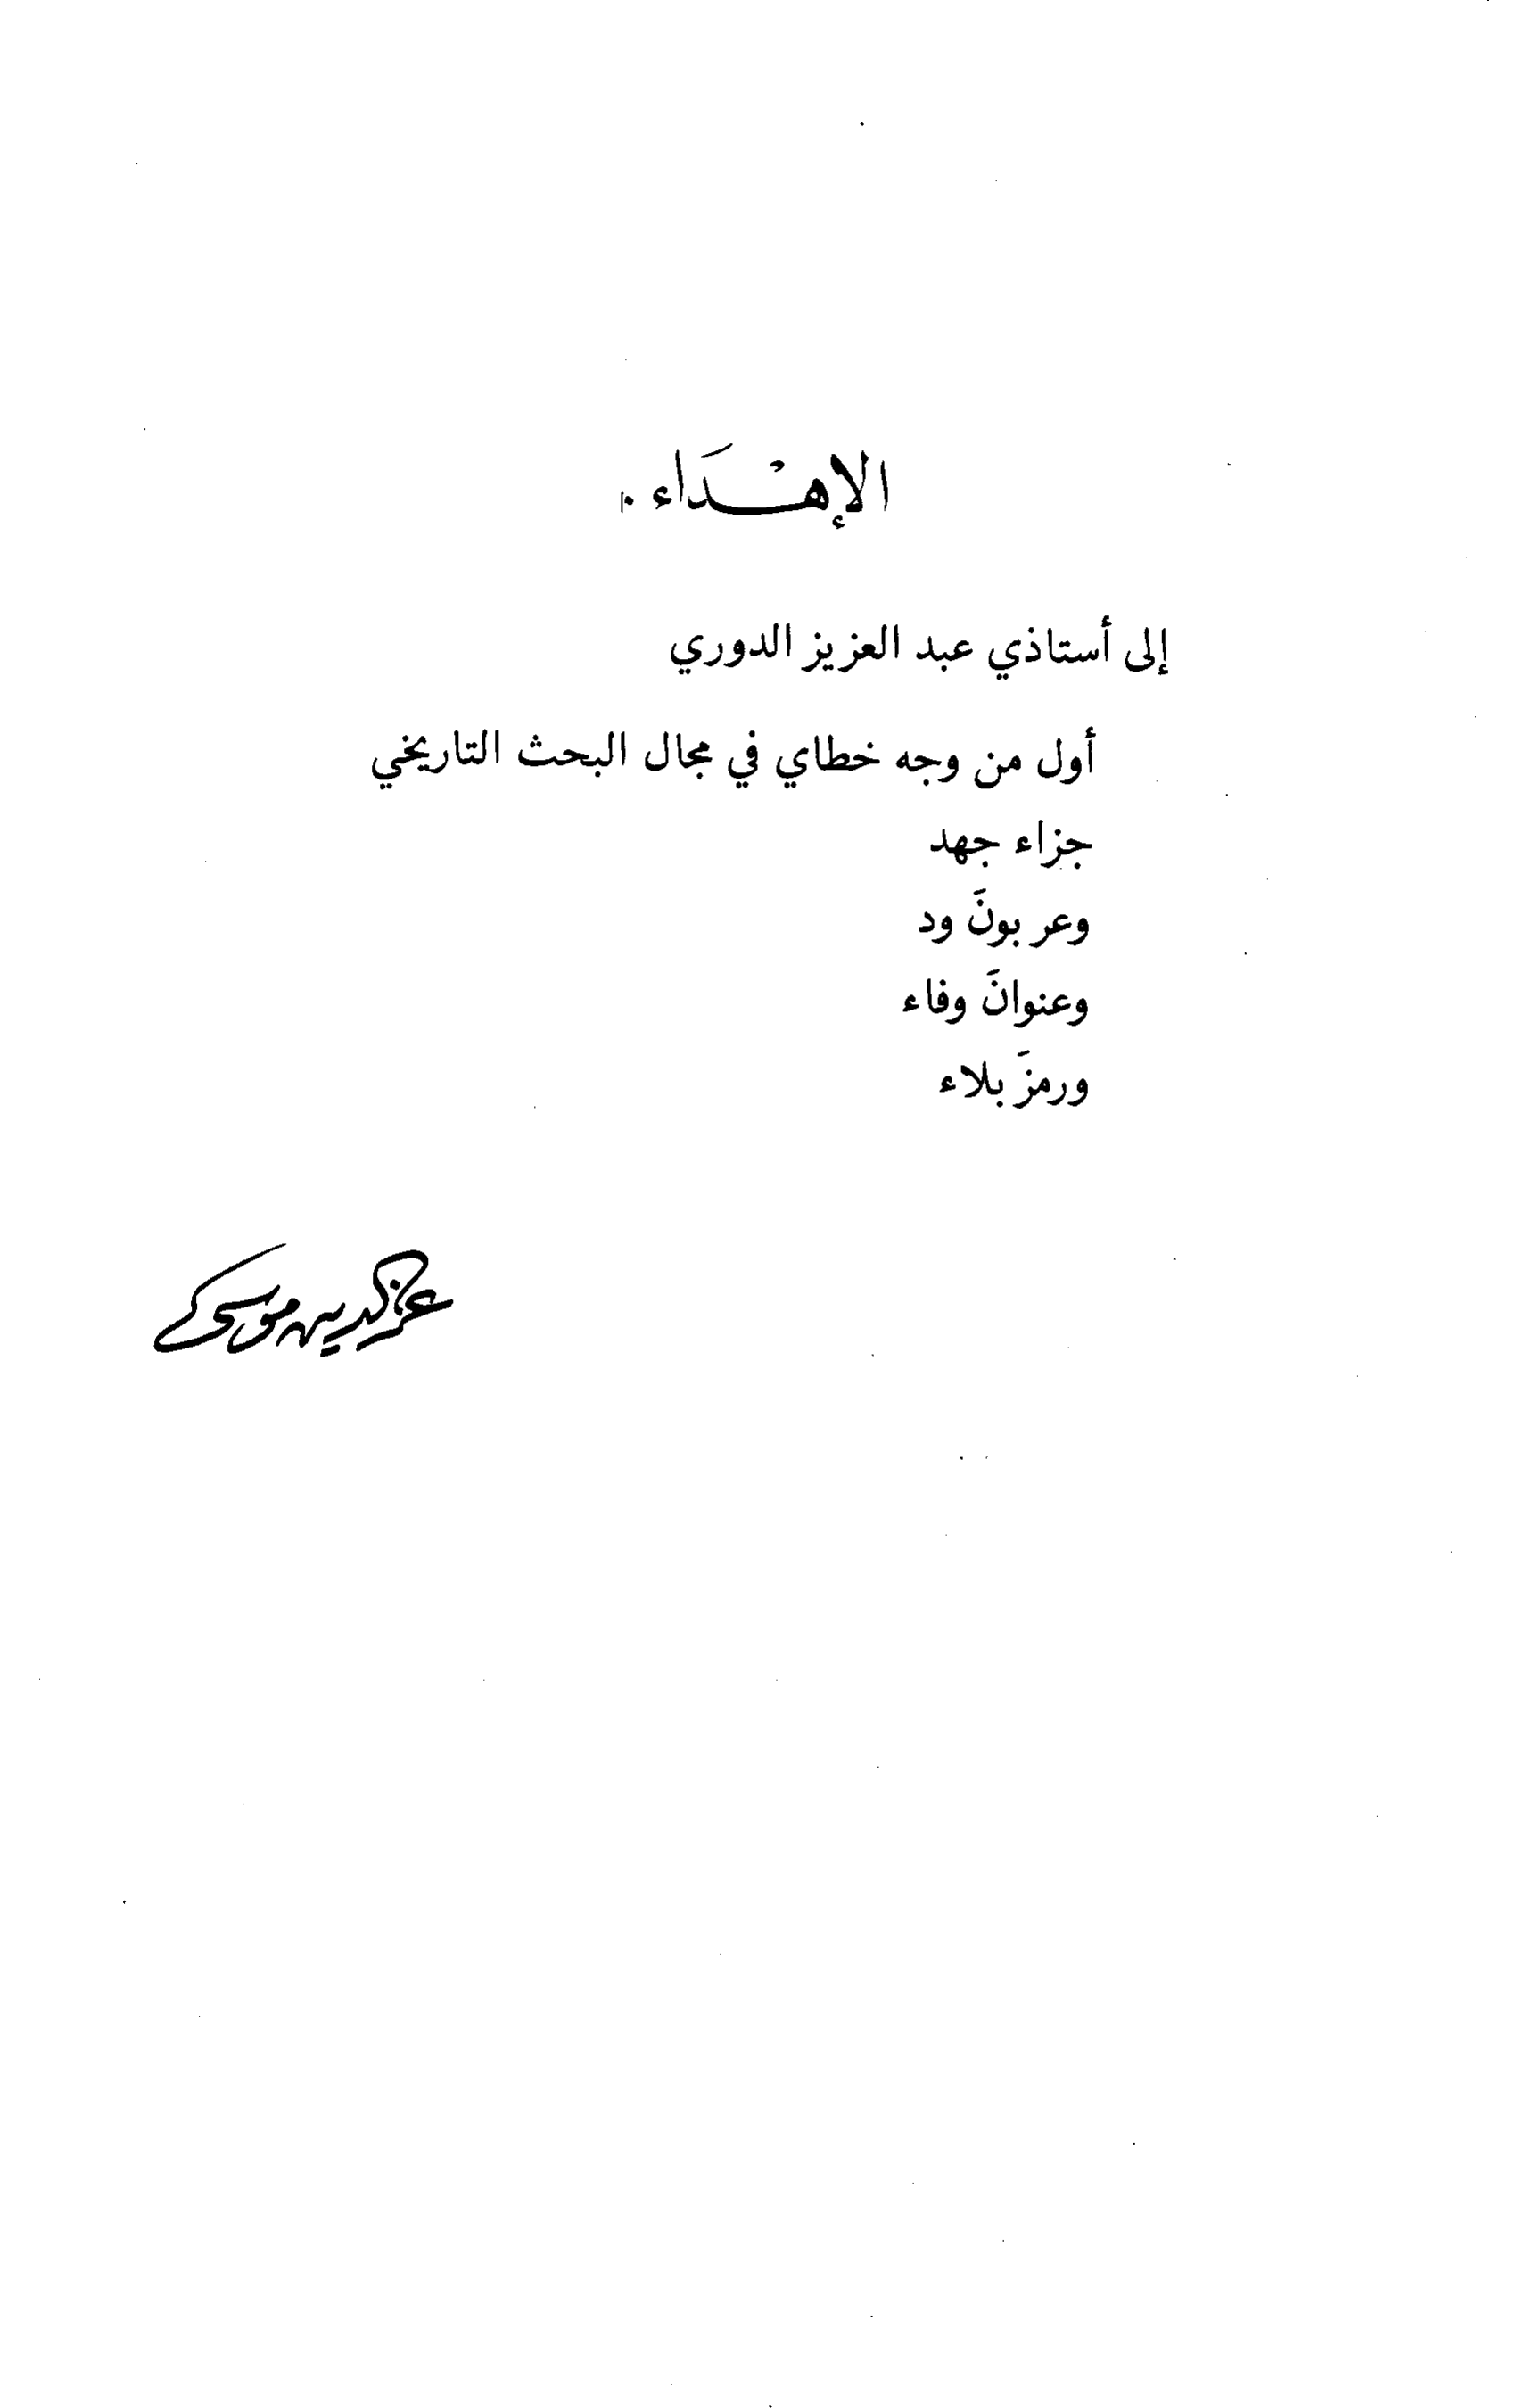 الإهْدَاء
إلى أستاذي عبد العزيز الدوري
أول من وجه خطاي في مجال البحث التاريخي
جزاء جهد
وعربونَ ود
وعنوانَ وفاء
ورمزَ بلاء
عز الدين موسى